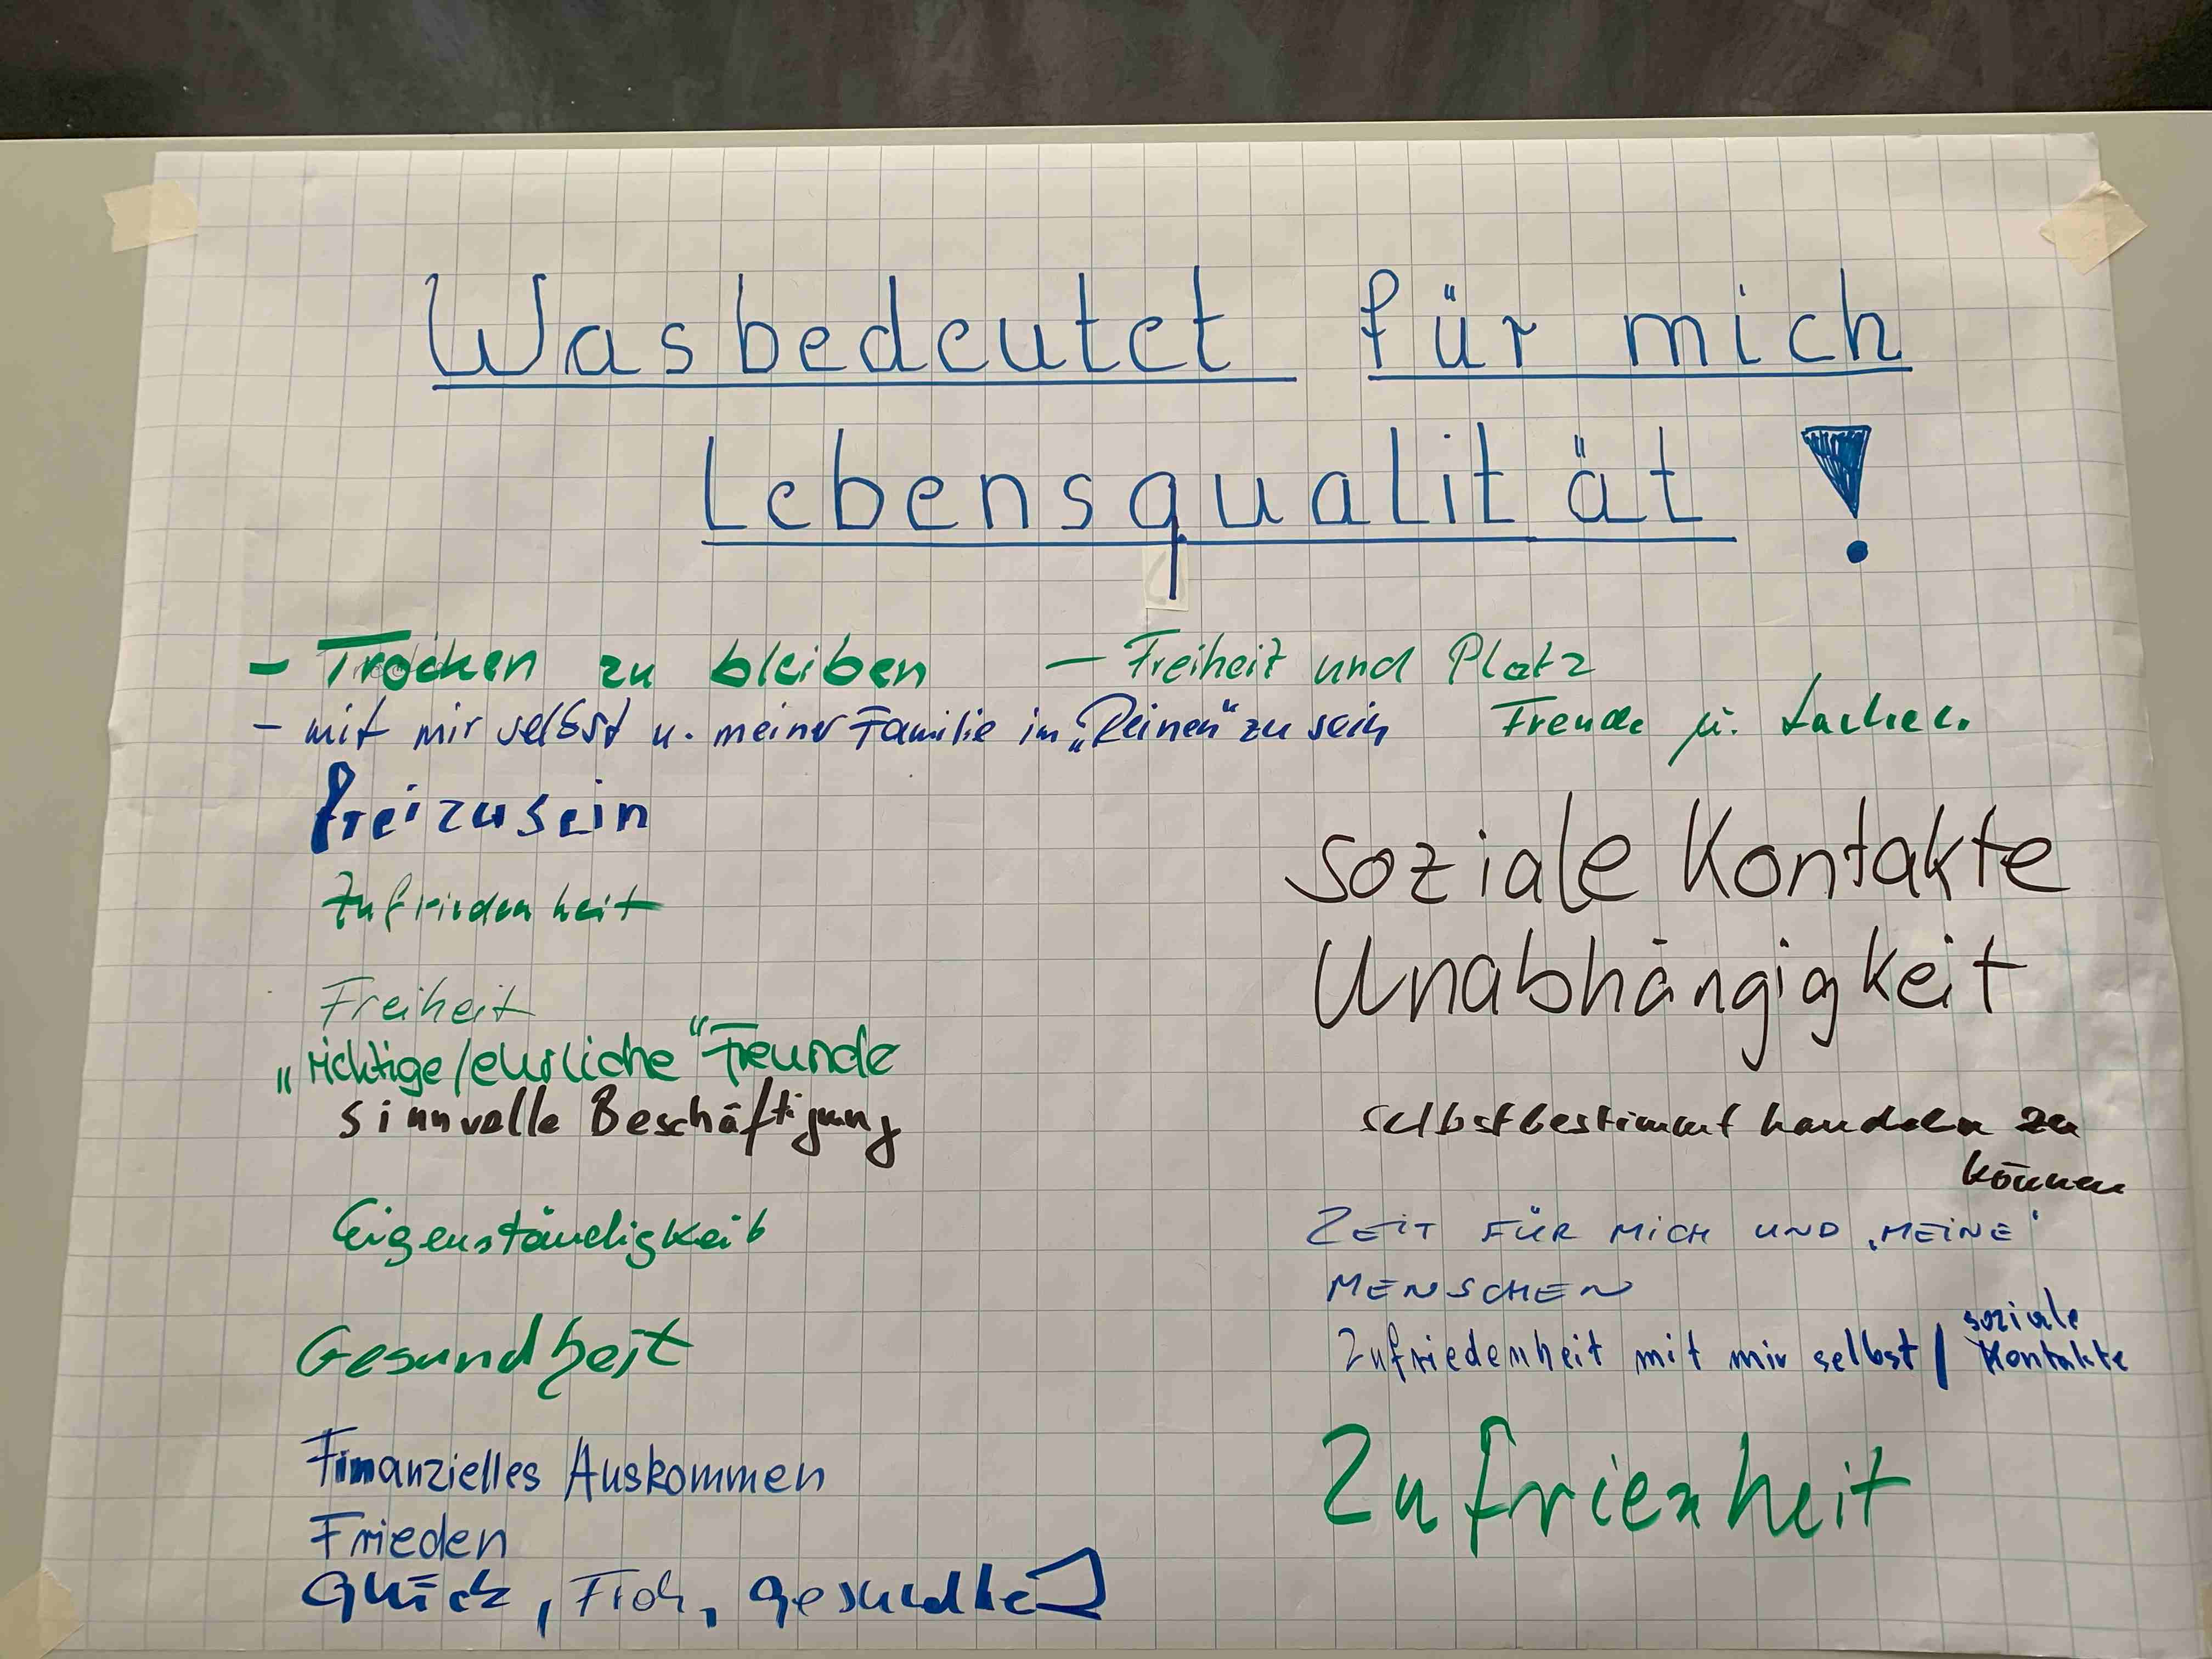 Was bedeutet für mich
Lebensqualität !
- Trocken zu bleiben
- Freiheit und Platz
- mit mir selbst u. meiner Familie im „Reinen“ zu sein
Freude u. Lachen.
frei zu sein
Zufriedenheit
Freiheit
„richtige/ehrliche“ Freunde
sinnvolle Beschäftigung
Eigenständigkeit
Gesundheit
Finanzielles Auskommen
Frieden
soziale Kontakte
Unabhängigkeit
selbstbestimmt handeln zu
können
ZEIT FÜR MICH UND ‚MEINE‘
MENSCHEN
Zufriedenheit mit mir selbst / soziale
Kontakte
Zufrienheit